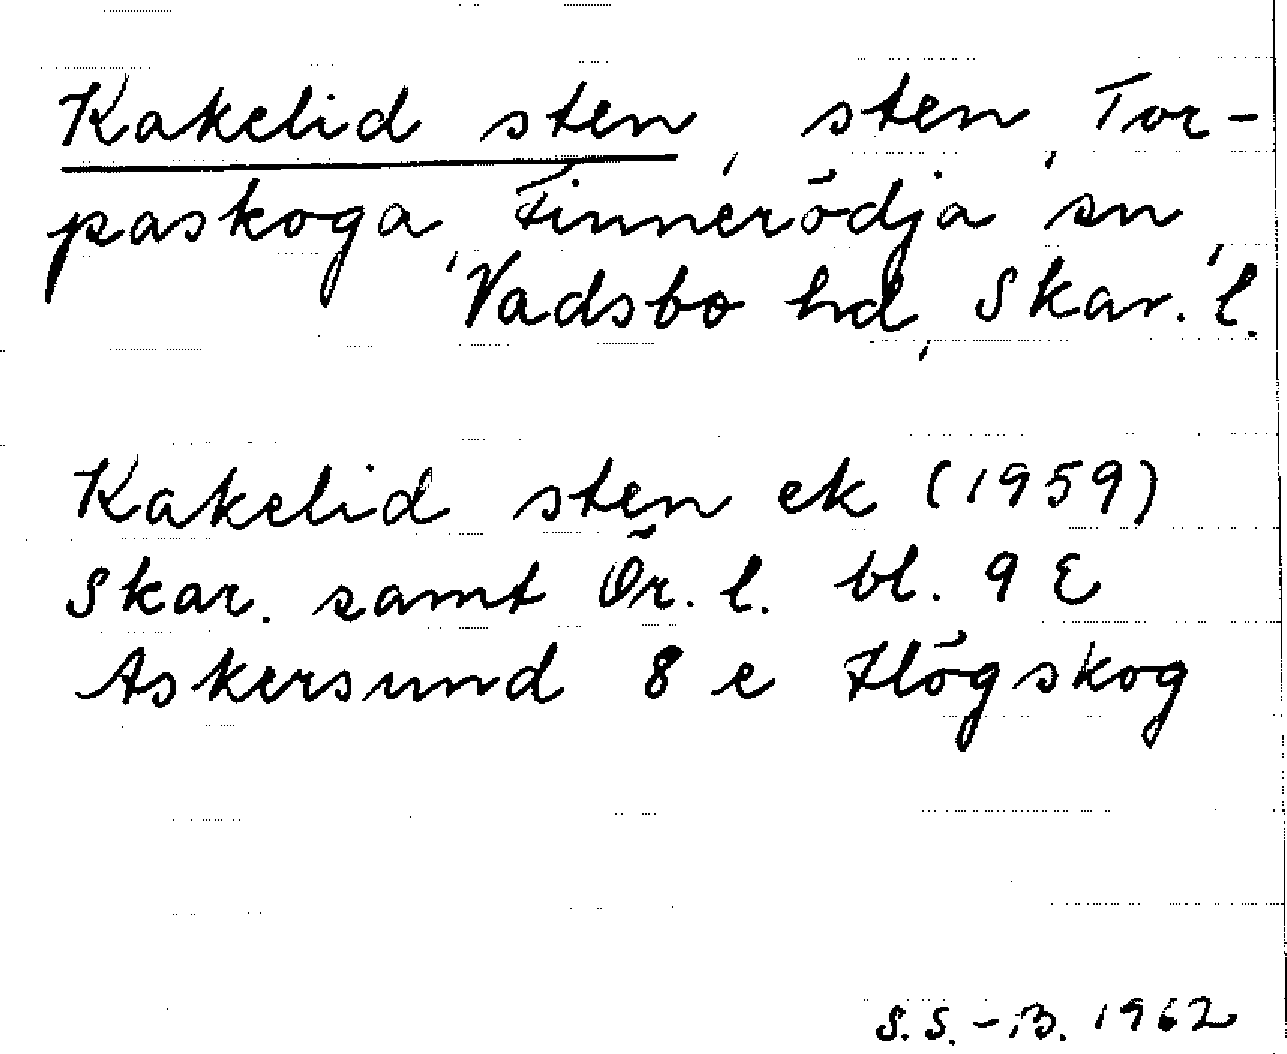 Kakelid sten, sten, Tor-
paskoga, Finnerödja sn,
Vadsbo hd, Skar. l.
Kakelid sten ek (1959)
Skar. samt Ör. l. bl. 9 E
Askersund 8 e Högskog
S.S.-B. 1962